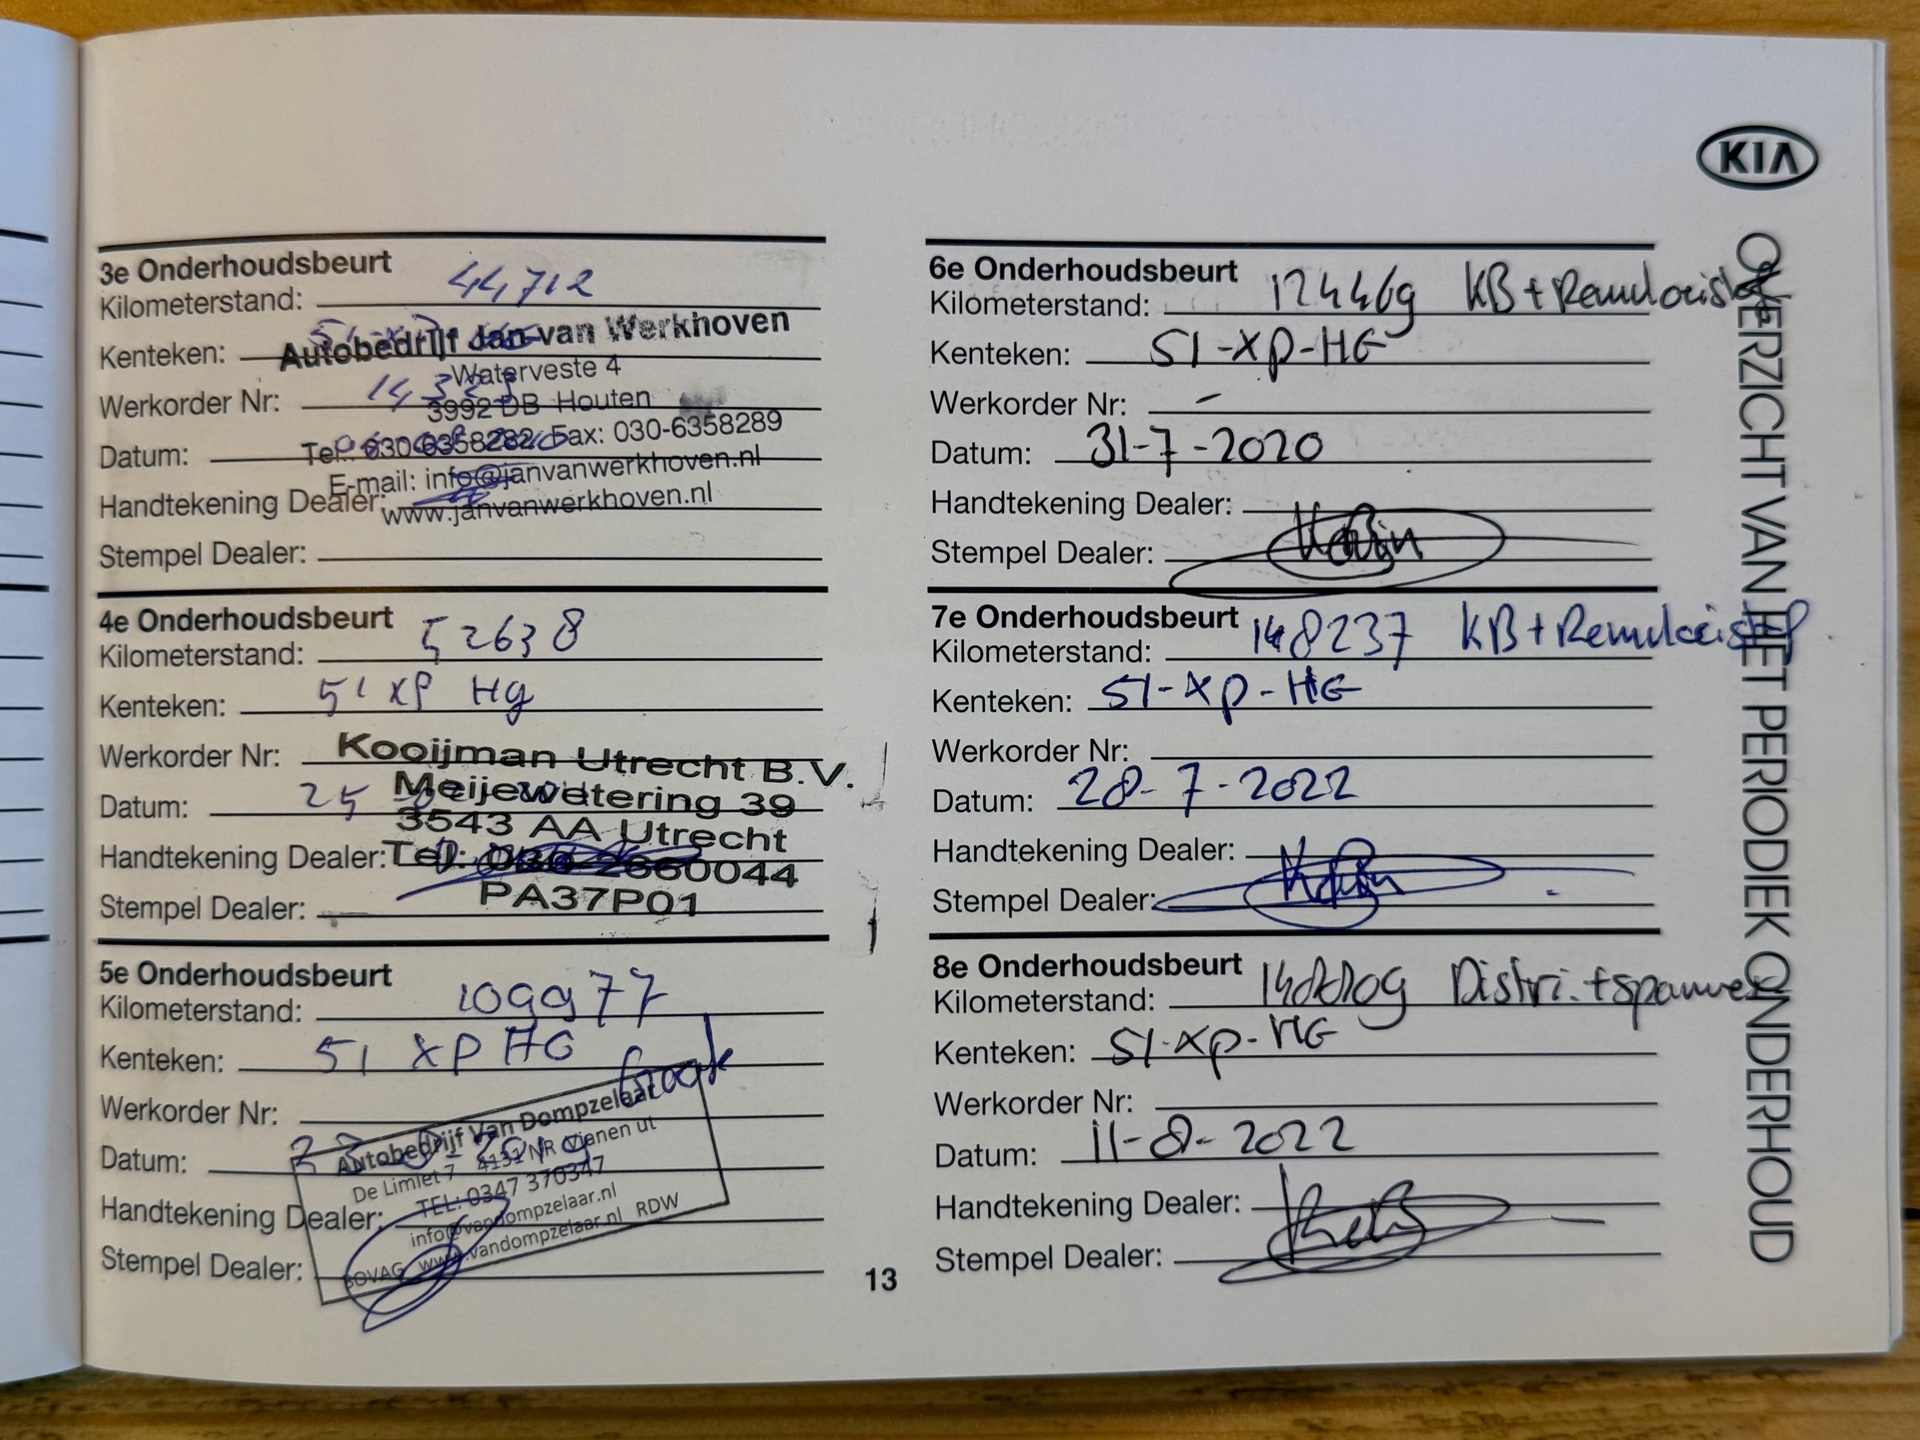 KIA
OVERZICHT VAN HET PERIODIEK ONDERHOUD
3e Onderhoudsbeurt
Kilometerstand: 44712
Kenteken:
Autobedrijf Jan van Werkhoven
Waterveste 4
Werkorder Nr:
3992 DB Houten
Datum:
Tel.: 030-6358282 Fax: 030-6358289
E-mail: info@janvanwerkhoven.nl
Handtekening Dealer:
www.janvanwerkhoven.nl
Stempel Dealer:
4e Onderhoudsbeurt
Kilometerstand: 52638
Kenteken: 51 XP Hg
Werkorder Nr:
Kooijman Utrecht B.V.
Meijewetering 39
Datum: 25
3543 AA Utrecht
Handtekening Dealer:
Tel: 030-2660044
PA37P01
Stempel Dealer:
5e Onderhoudsbeurt
Kilometerstand: 109977
Kenteken: 51 XP HG
Groot
Werkorder Nr:
Autobedrijf Van Dompzelaar
Datum:
De Limiet 7 4131 NR Vianen ut
TEL: 0347 370347
Handtekening Dealer:
info@vandompzelaar.nl
BOVAG www.vandompzelaar.nl RDW
Stempel Dealer:
13
6e Onderhoudsbeurt
Kilometerstand: 124469 KB + Remvloeistof
Kenteken: 51-XP-HG
Werkorder Nr: -
Datum: 31-7-2020
Handtekening Dealer:
Stempel Dealer:
7e Onderhoudsbeurt
Kilometerstand: 148237 KB + Remvloeistof
Kenteken: 51-XP-HG
Werkorder Nr:
Datum: 28-7-2022
Handtekening Dealer:
Stempel Dealer:
8e Onderhoudsbeurt
Kilometerstand: Distri. +
Kenteken: 51-XP-HG
Werkorder Nr:
Datum: 11-8-2022
Handtekening Dealer:
Stempel Dealer: